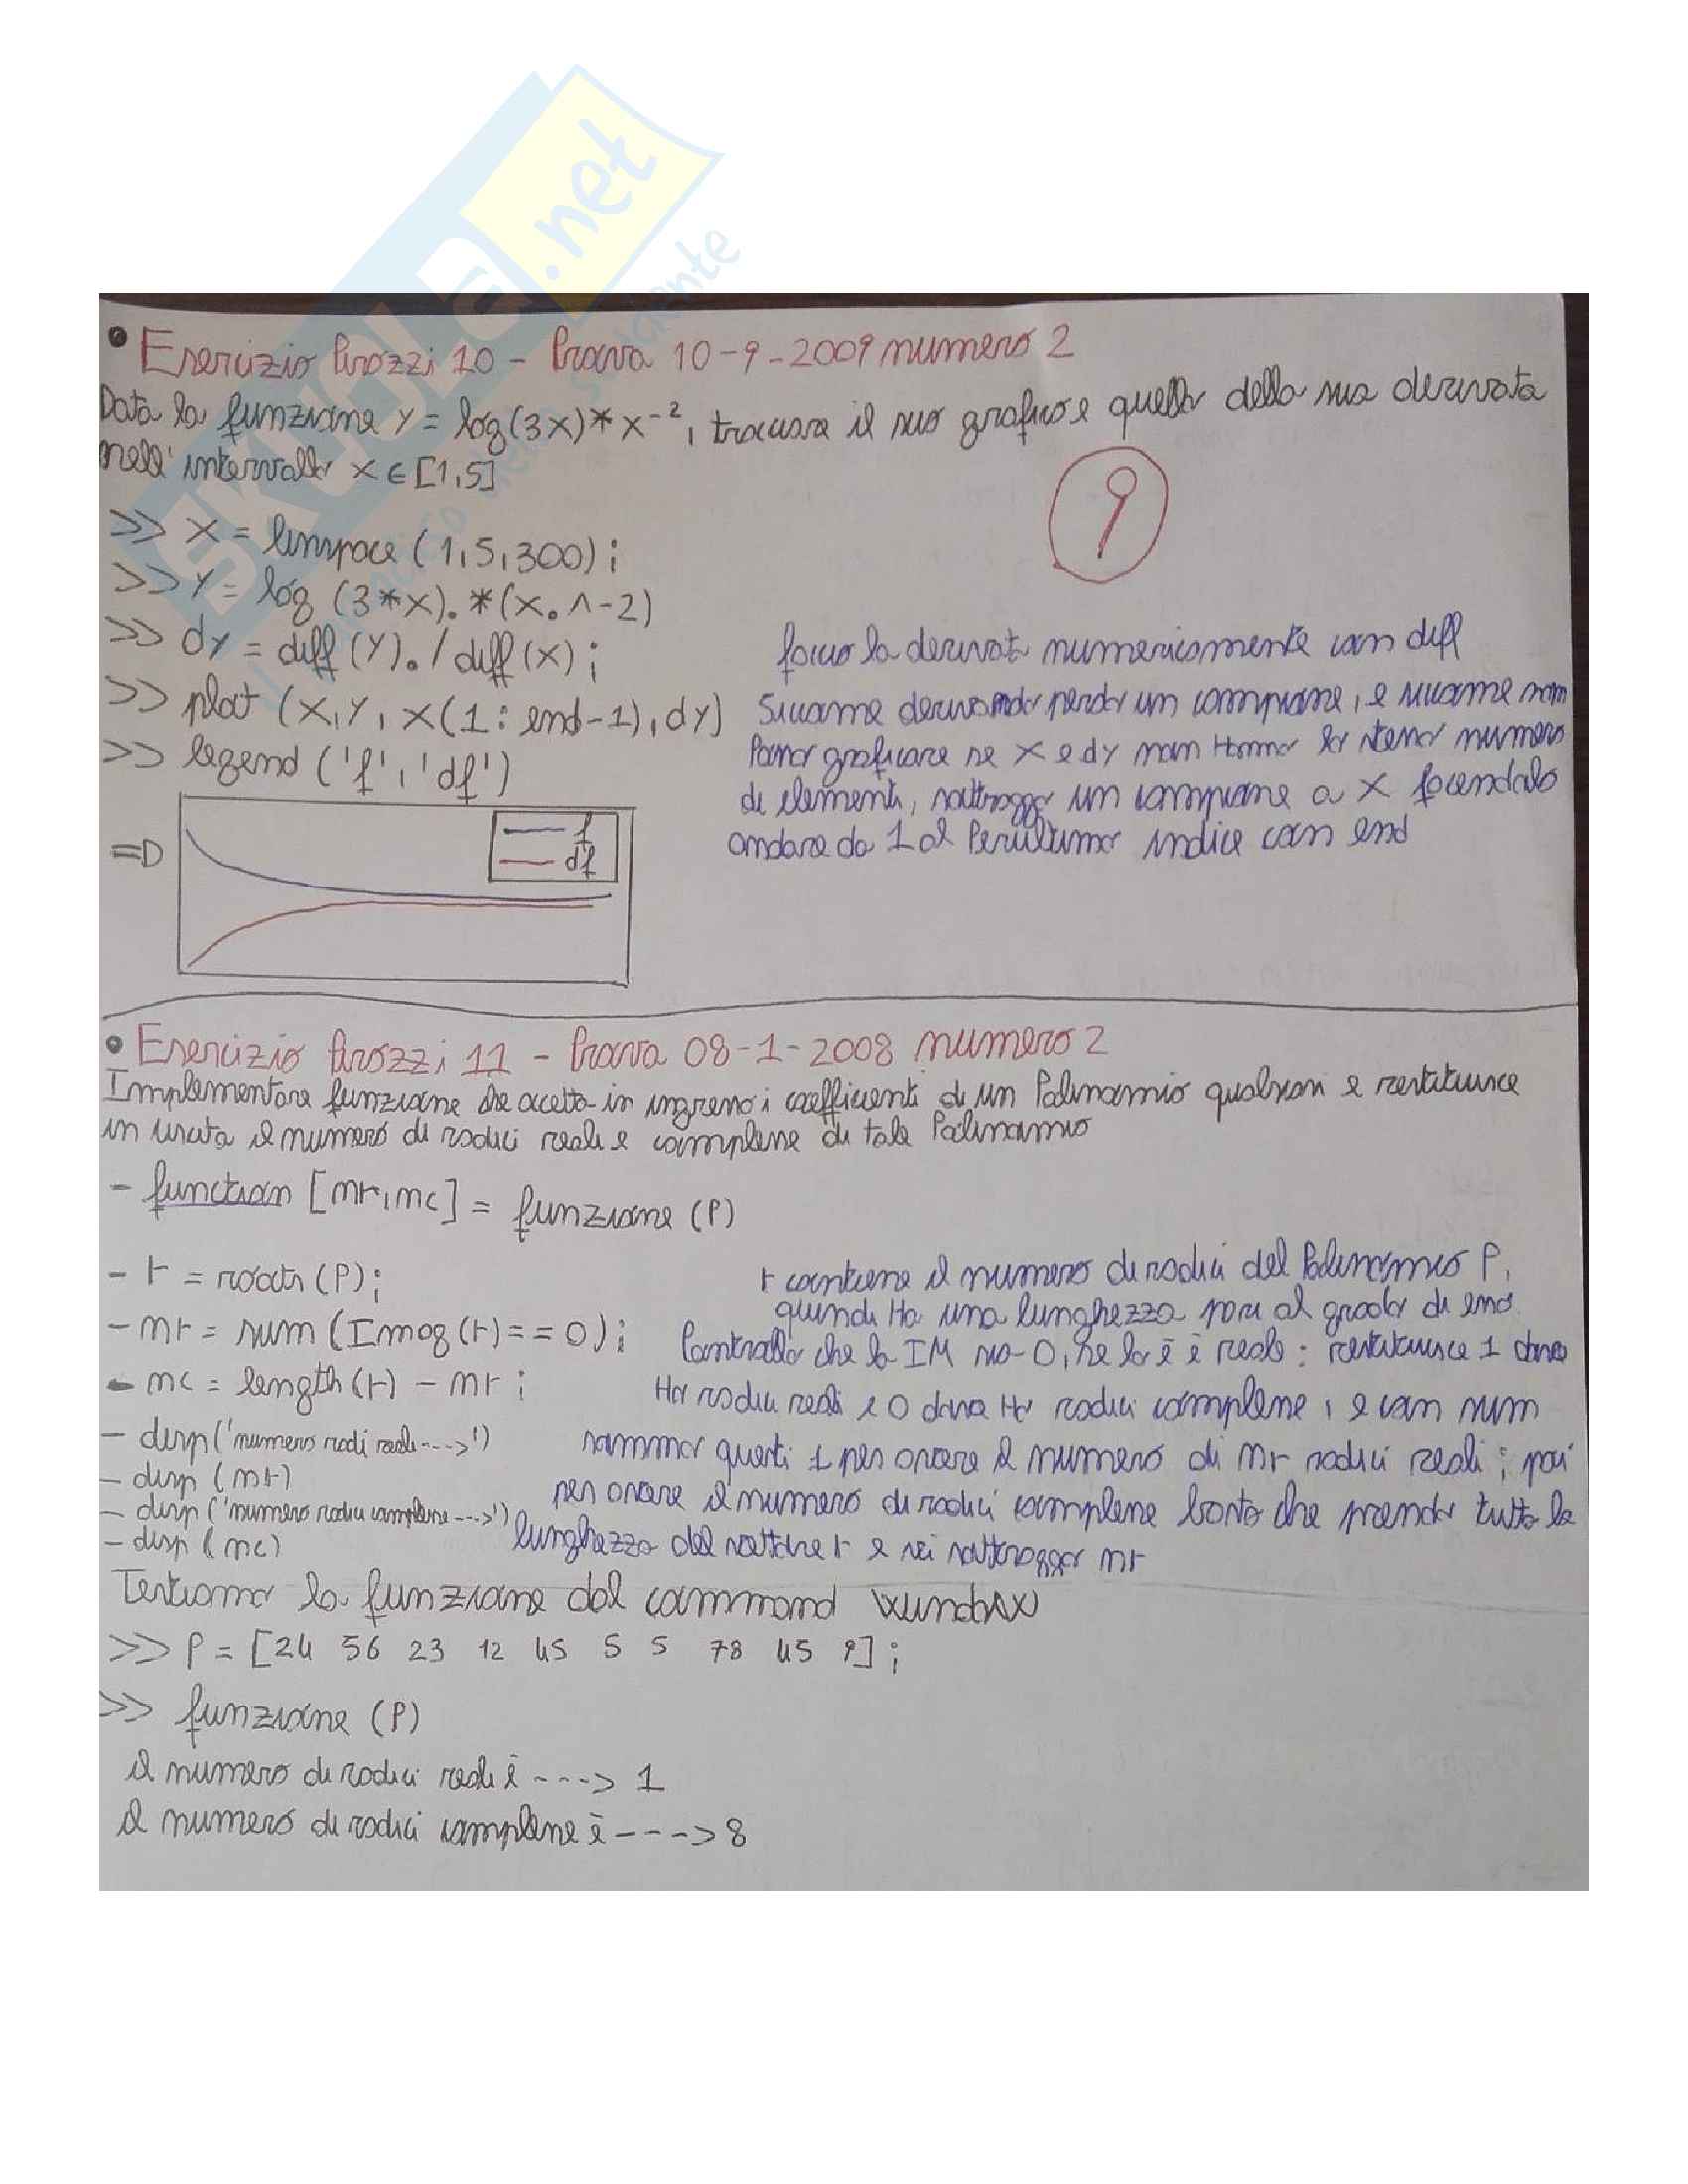 SKUOLA.net
• Esercizio Pirozzi 10 - Prova 10-9-2009 numero 2
Data la funzione y = log(3x)*x⁻², tracciare il suo grafico e quello della sua derivata
nell' intervallo x ∈ [1,5]
9
>> x = linspace (1,5,300);
>> y = log (3*x).*(x.^-2)
>> dy = diff(y)./diff(x);
faccio la derivata numericamente con diff
>> plot (x,y,x(1:end-1),dy)
Siccome derivando perdo un campione, e siccome non
>> legend ('f','df')
Posso graficare se x e dy non Hanno lo stesso numero
di elementi, sottraggo un campione a x facendolo
andare da 1 al Penultimo indice con end
=D
f
df
• Esercizio Pirozzi 11 - Prova 08-1-2008 numero 2
Implementare funzione che accetta in ingresso i coefficienti di un Polinomio qualsiasi e restituisce
in uscita il numero di radici reali e complesse di tale Polinomio
- function [nr,nc] = funzione (P)
- r = roots(P);
r contiene il numero di radici del Polinomio P,
quindi Ha una lunghezza pari al grado di esso.
- nr = sum (Imag(r)==0);
Controllo che la IM sia 0, se lo è è reale: restituisce 1 dove
- nc = length(r) - nr;
Ho radici reali e 0 dove Ho radici complesse, e con sum
- disp('numero radi reali---->')
sommo questi 1 per avere il numero di nr radici reali; poi
- disp (nr)
per avere il numero di radici complesse basta che prendo tutta la
- disp('numero radici complesse--->')
lunghezza del vettore r e ci sottraggo nr
- disp(nc)
Testiamo la funzione dal command window
>> P = [24 56 23 12 45 5 5 78 45 9];
>> funzione (P)
il numero di radici reali è ----> 1
il numero di radici complesse è ----> 8